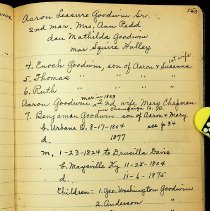 163
Aaron Leasure Goodwin Sr.
2nd mar. Mrs. Ann Redd
dau Mathilda Goodwin
mar Squire Hulley
4. Enoch Goodwin, son of Aaron & Susanna
5. Thomas " " " " "
6. Ruth " " " " "
Aaron Goodwin 2nd wife Mary Chapman
7. Benjamin Goodwin son of Aaron & Mary
b. Urbana O. 8-17-1804 see p 84
d. 1877
m. 1-23-1824 to Druscilla Davis
b. Maysville Ky 11-25-1804
d. 11-6-1875
Children: 1. Geo. Washington Goodwin
2. Anderson "